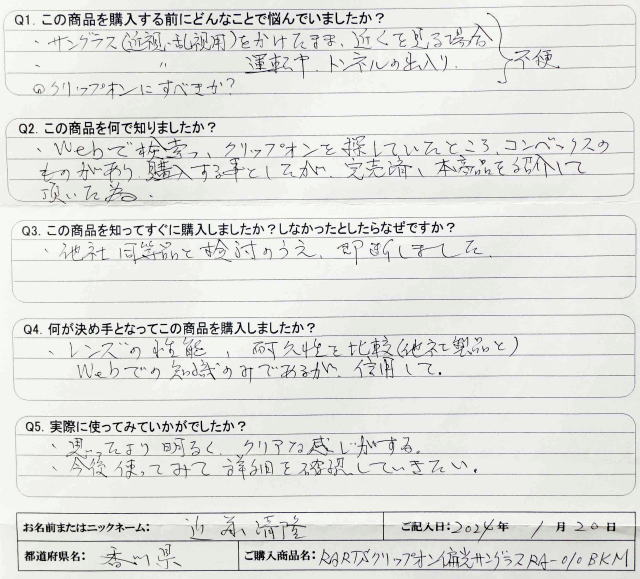 Q1. この商品を購入する前にどんなことで悩んでいましたか？
・サングラス(近視・乱視用)をかけたまま、近くを見る場合
・ 〃 運転中、トンネルの出入り、 不便
クリップオンにすべきか？
Q2. この商品を何で知りましたか？
・Webで検索っ、クリップオンを探していたところ、コンベックスの
ものがあり購入する事としたが、完売済、本商品を紹介して
頂いた為。
Q3. この商品を知ってすぐに購入しましたか？しなかったとしたらなぜですか？
・他社同等品と検討のうえ、即断しました。
Q4. 何が決め手となってこの商品を購入しましたか？
・レンズの性能、耐久性を比較(他社製品と)
Webでの知識のみであるが、信用して。
Q5. 実際に使ってみていかがでしたか？
・思ったより明るく、クリアな感じがする。
・今後使ってみて詳細を確認していきたい。
お名前またはニックネーム： 近藤清隆 ご記入日：2024年 1月20日
都道府県名： 香川県 ご購入商品名：RARTSクリップオン偏光サングラスRA-010BKM